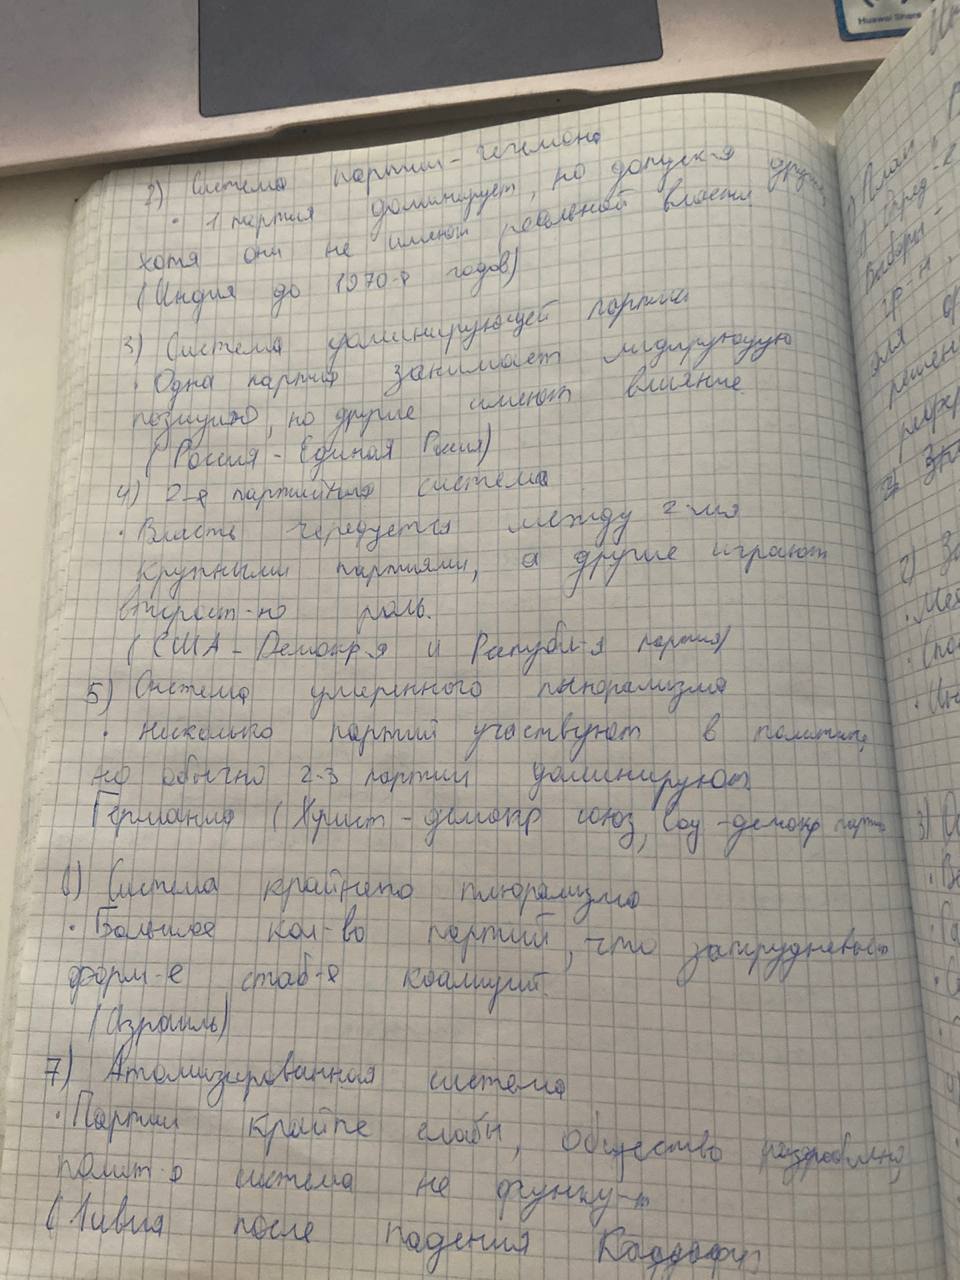 Huawei Share
2) Система партии - гегемона
· 1 партия доминирует, но допуск-я другие,
хотя они не имеют реальной власти
(Индия до 1970-х годов)
3) Система доминирующей партии
· Одна партия занимает лидирующую
позицию, но другие имеют влияние.
(Россия - Единая Россия)
4) 2-х партийная система
· Власть чередуется между 2-мя
крупными партиями, а другие играют
второст-ю роль.
(США - Демокр-я и Республ-я партия)
5) Система умеренного плюрализма
· несколько партий участвуют в политике,
но обычно 2-3 партии доминируют.
Германия (Христ-демокр союз, Соц-демокр партия
6) Система крайнего плюрализма
· Большое кол-во партий, что затрудняет
форм-е стаб-х коалиций.
(Израиль)
7) Атомизированная система
· Партии крайне слабы, общество раздроблено,
полит-я система не функц-т
(Ливия после падения Каддафи
1) План
Выборы -
гр-н
для
решен
2) За
3) Ос